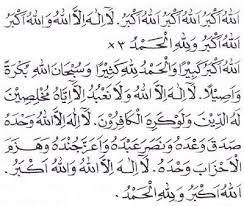 اَللّٰهُ اَكْبَرُ اَللّٰهُ اَكْبَرُ اَللّٰهُ اَكْبَرُ. لَآ اِلٰهَ اِلَّا اللّٰهُ وَاللّٰهُ اَكْبَرُ
اَللّٰهُ اَكْبَرُ وَلِلّٰهِ الْحَمْدُ ×٣
اَللّٰهُ اَكْبَرُ كَبِيْرًا وَالْحَمْدُ لِلّٰهِ كَثِيْرًا وَسُبْحَانَ اللّٰهِ بُكْرَةً
وَاَصِيْلًا. لَآ اِلٰهَ اِلَّا اللّٰهُ وَلَا نَعْبُدُ اِلَّا اِيَّاهُ مُخْلِصِيْنَ
لَهُ الدِّيْنَ وَلَوْكَرِهَ الْكَافِرُوْنَ. لَآ اِلٰهَ اِلَّا اللّٰهُ وَحْدَهُ
صَدَقَ وَعْدَهُ وَنَصَرَ عَبْدَهُ وَاَعَزَّجُنْدَهُ وَهَزَمَ
الْاَحْزَابَ وَحْدَهُ. لَآ اِلٰهَ اِلَّا اللّٰهُ وَاللّٰهُ اَكْبَرُ.
اَللّٰهُ اَكْبَرُ وَلِلّٰهِ الْحَمْدُ.